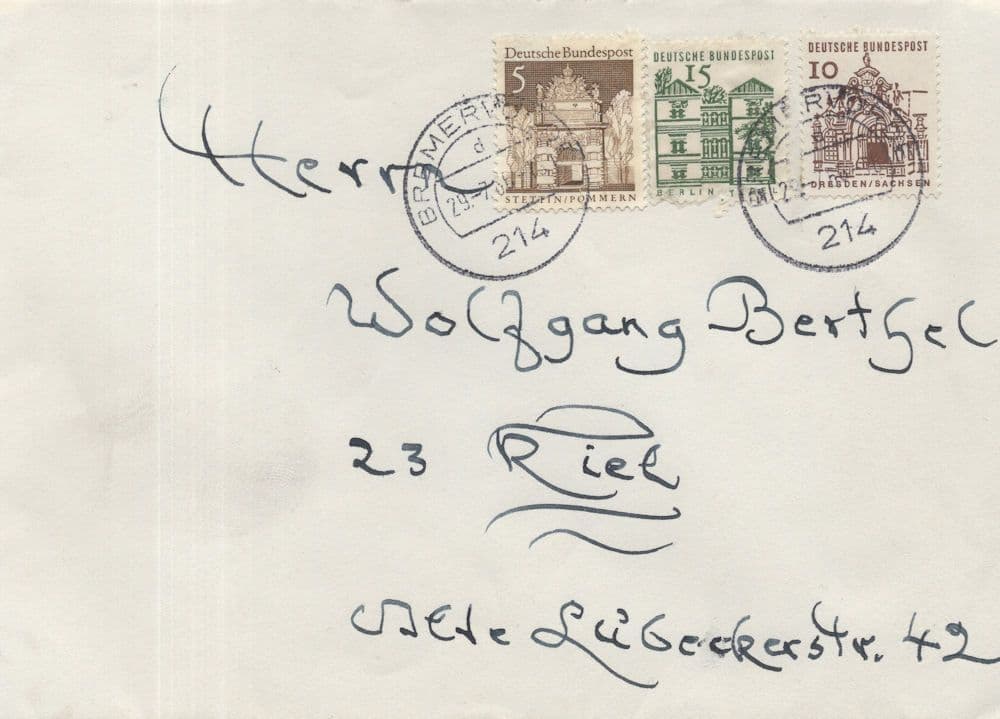 Deutsche Bundespost
5
STETTIN/POMMERN
DEUTSCHE BUNDESPOST
15
BERLIN
DEUTSCHE BUNDESPOST
10
DRESDEN/SACHSEN
214
214
Herrn
Wolfgang Berthel
23 Kiel
Alte Lübeckerstr. 42